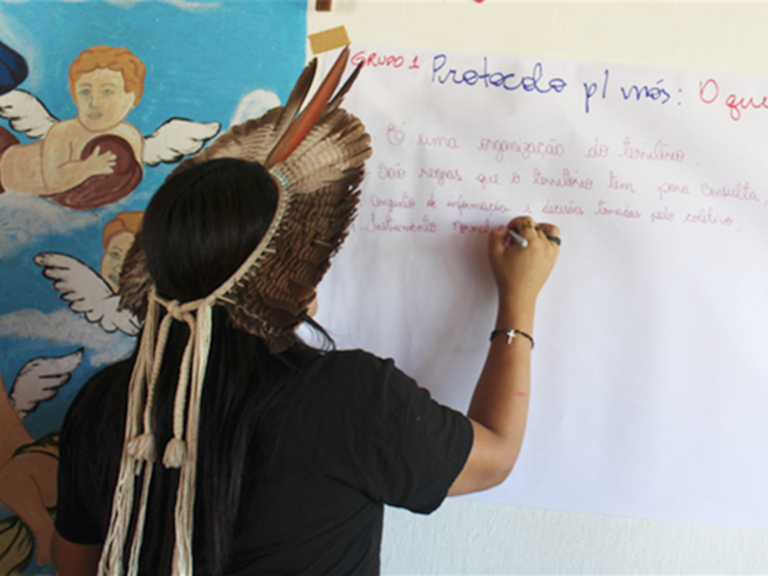 GRUPO 1 Protocolo p/ nós: O que
É uma organização do território.
- São regras que o território tem para consulta,
Conjunto de informações e decisões tomadas pelo coletivo.
- Instrumento